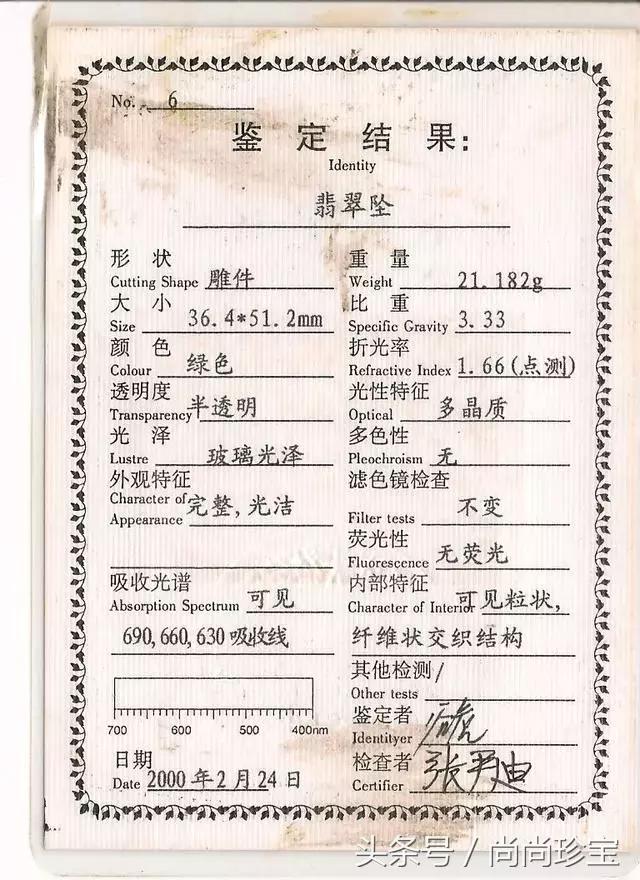 No. 6
鉴定结果:
Identity
翡翠坠
形状
Cutting Shape 雕件
重量
Weight 21.182g
大小
Size 36.4*51.2mm
比重
Specific Gravity 3.33
颜色
Colour 绿色
折光率
Refractive Index 1.66(点测)
透明度
Transparency 半透明
光性特征
Optical 多晶质
光泽
Lustre 玻璃光泽
多色性
Pleochroism 无
外观特征
Character of Appearance 完整,光洁
滤色镜检查
Filter tests 不变
荧光性
Fluorescence 无荧光
吸收光谱
Absorption Spectrum 可见
690,660,630吸收线
内部特征
Character of Interior 可见粒状,
纤维状交织结构
700 600 500 400nm
其他检测/
Other tests
鉴定者
Identityer
检查者
Certifier
日期
Date 2000年2月24日
头条号/尚尚珍宝